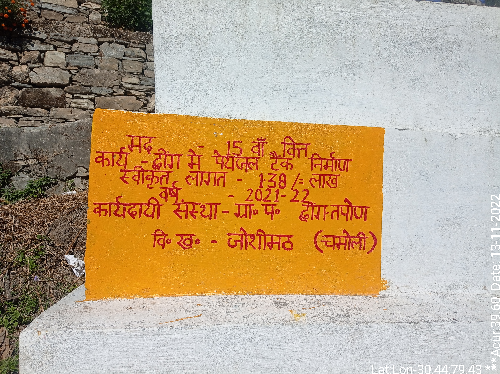 मद - 15 वाँ वित्त
कार्य - द्वींग में पेयजल टैंक निर्माण
स्वीकृत लागत - 1.38/- लाख
वर्ष - 2021-22
कार्यदायी संस्था - ग्रा॰ पं॰ द्वींग-तपोण
वि॰ ख॰ - जोशीमठ (चमोली)
Lat Lon-30.44 79.43
Date-13-11-2022